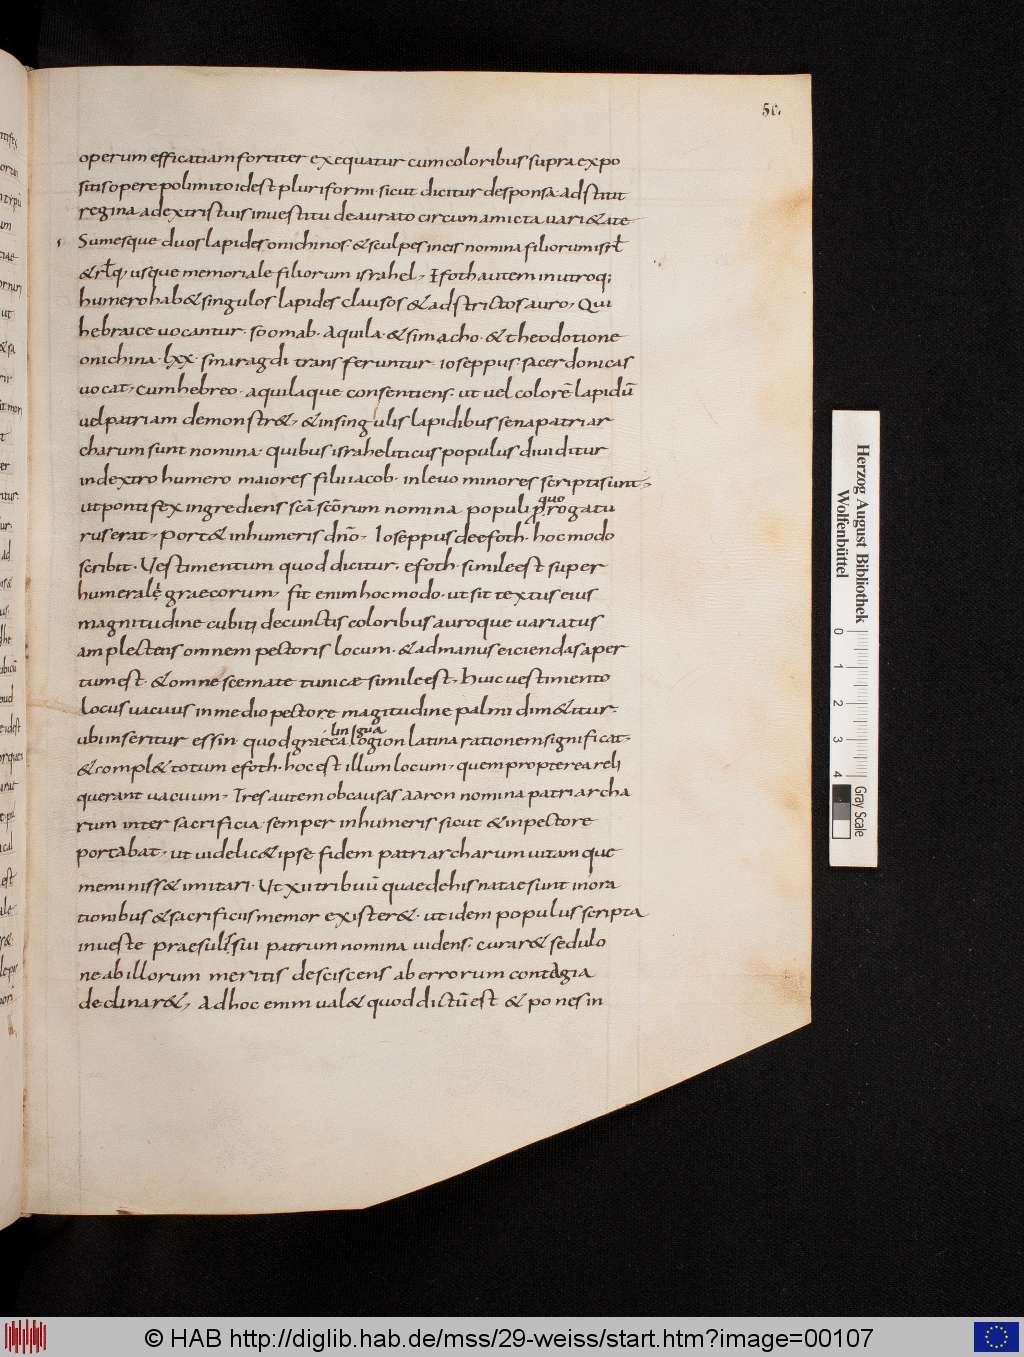 50.
operum efficatiam fortiter exequatur cum coloribus supra expo
sitis opere polimito id est pluriformi sicut dicitur de sponsa· adstitit
regina a dextris tuis in vestitu deaurato circumamicta varietate
Sumesque duos lapides onichinos· & sculpes in eis nomina filiorum isrł
& rł q; usque memoriale filiorum israhel, Efoth autem in utroq;
humero hab& singulos lapides clausos & adstrictos auro, Qui
hebraice vocantur· soomab· Aquila· & simacho· & theodotione
onichina· lxx· smaragdi transferuntur· ioseppus· sacerdonicas
vocat, cum hebreo· aquilaque consentiens· ut vel colorē lapidū
vel patriam demonstr&, & in singulis lapidibus sena patriar
charum sunt nomina· quibus israheliticus populus dividitur
in dextro humero maiores filii iacob· in levo minores scripti sunt,
ut pontifex ingrediens scā scōrum nomina populi p quo rogatu
rus erat, port& in humeris dño, Ioseppus de efoth· hoc modo
scribit· Vestimentum quod dicitur· efoth· simile est super
humerale graecorum, fit enim hoc modo· ut sit textus eius
magnitudine cubiti de cunctis coloribus auroque variatus
amplectens omnem pectoris locum· & ad manus eiciendas aper
tum est· & omne scemate tunicæ simile est, huic vestimento
locus vacuus in medio pectore magitudine palmi dim&itur·
ubi inseritur essin· quod graeca lingua logion latina rationem significat,
& compl& totum efoth· hoc est illum locum, quem propterea reli
querant vacuum, Tres autem ob causas aaron nomina patriarcha
rum inter sacrificia semper in humeris sicut & in pectore
portabat, ut videlic& ipse fidem patriarcharum vitamque
meminiss& imitari· Ut xii tribuū quae de his natae sunt in ora
tionibus & sacrificiis memor exister&· ut idem populus scripta
in veste praesulis sui patrum nomina videns· curar& sedulo
ne ab illorum meritis desciscens ab errorum contagia
declinar&, Ad hoc enim val& quod dictū est & pones in
Herzog August Bibliothek
Wolfenbüttel
0 1 2 3 4
Gray Scale
© HAB http://diglib.hab.de/mss/29-weiss/start.htm?image=00107